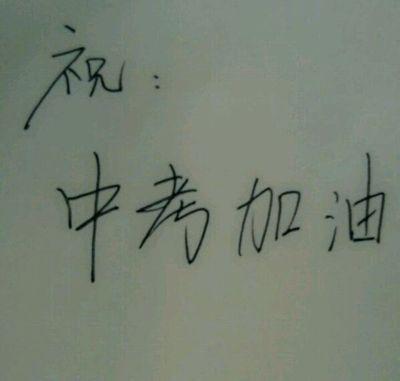 祝：
中考加油